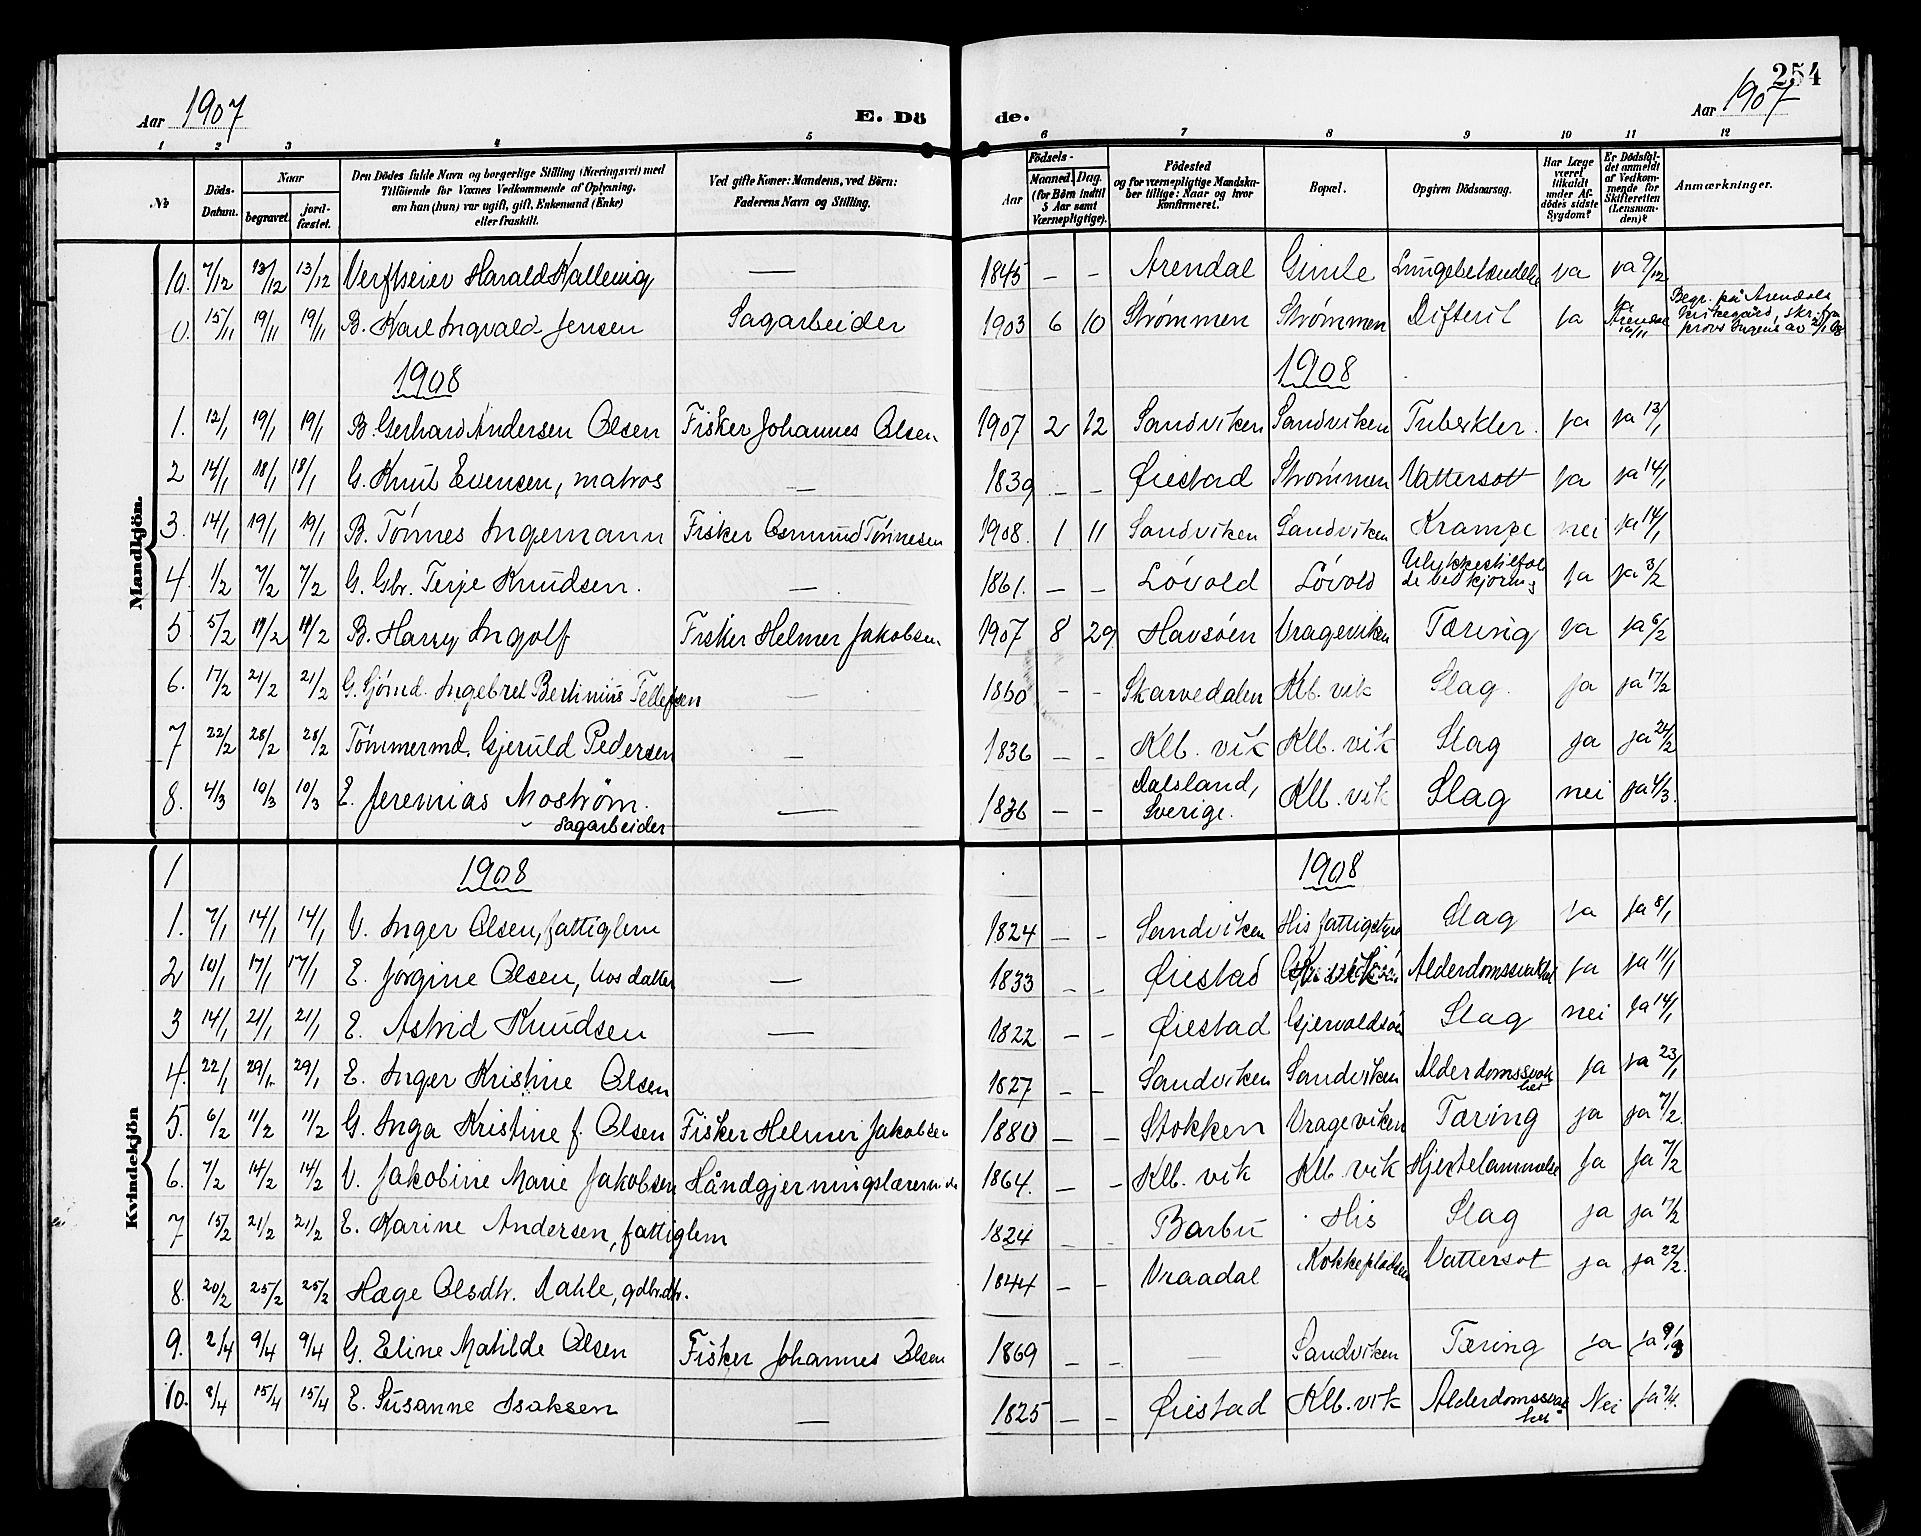 254
Aar 1907
E. Dö
de.
Aar 1907
1 2 3 4 5 6 7 8 9 10 11 12
No
Döds-Datum.
Naar
begravet.
jord-fæstet.
Den Dödes fulde Navn og borgerlige Stilling (Næringsvei) med
Tilföiende for Voxnes Vedkommende af Oplysning,
om han (hun) var ugift, gift, Enkemand (Enke)
eller fraskilt.
Ved gifte Koner: Mandens, ved Börn:
Faderens Navn og Stilling.
Födsels-
Aar
Maaned. Dag.
(for Börn indtil
5 Aar samt
Værnepligtige).
Födested
og for værnepligtige Mandska-
ber tillige: Naar og hvor
konfirmeret.
Bopæl.
Opgiven Dödsaarsag.
Har Læge
været
tilkaldt
under Af-
dödes sidste
Sygdom?
Er Dödsfal-
det anmeldt
af Vedkom-
mende for
Skifteretten
(Lensman-
den)?
Anmærkninger.
Mandkjön.
10. 7/12 13/12 13/12 Verftseier Harald Kallevig — 1845 – – Arendal Gimle Lungebetændelse ja ja 9/12
0. 15/11 19/11 19/11 B. Karl Ingvald Jensen Sagarbeider 1903 6 10 Strømmen Strømmen Difterit ja ja Arendal 16/11 Begr. på Arendals kirkegård, skr. fra provs av 2/1 08
1908 1908
1. 12/1 19/1 19/1 B. Gerhard Andersen Olsen Fisker Johannes Olsen 1907 2 12 Sandviken Sandviken Tuberkler. ja ja 13/1
2 14/1 18/1 18/1 G. Knut Evensen, matros — 1839 – – Øiestad Strømmen Vattersott ja ja 14/1
3. 14/1 19/1 19/1 B. Tønnes Ingemann Fisker Osmund Tønnesen 1908. 1 11 Sandviken Sandviken Krampe nei ja 14/1
4 1/2 7/2 7/2 G. Gbr. Terje Knudsen. — 1861. – – Løvold Løvold Ulykkestilfælde ved kjøring ja ja 3/2
5 5/2 14/2 14/2 B. Harry Ingolf Fisker Helmer Jakobsen 1907 8 29 Havsøen Vrageviken Tæring ja ja 6/2
6. 17/2 21/2 21/2 G. Sjømd. Ingebret Bertinius Tellefsen — 1860 – – Skarvedalen Klb. vik Slag. ja ja 17/2
7 22/2 28/2 28/2 Tømmermd. Gjeruld Pedersen — 1836 – – Klb. vik Klb. vik Slag ja ja 24/2
8. 4/3 10/3 10/3 E. Jeremias Moström. sagarbeider — 1836 – – Dalsland, Sverige. Klb. vik Slag nei ja 4/3.
Kvindekjön
1 1908 1908
1. 7/1 14/1 14/1 V. Inger Olsen, fattiglem 1824 – – Sandviken His fattigstyre Slag ja ja 8/1
2 10/1 17/1 17/1 E. Jørgine Olsen, hos datter — 1833 – – Øiestad Alderdomssvakhet ja ja 11/1
3 14/1 21/1 21/1 E. Astrid Knudsen — 1822 – – Øiestad Gjervoldsøen Slag nei ja 14/1
4. 22/1 29/1. 29/1 E. Inger Kristine Olsen 1827 – – Sandviken Sandviken Alderdomssvakhet ja ja 23/1
5. 6/2 11/2 11/2 G. Inga Kristine f. Olsen Fisker Helmer Jakobsen 1880 – – Stokken Vrageviken Tæring ja ja 7/2.
6. 7/2 14/2 14/2 V. Jakobine Marie Jakobsen Håndgjerningslærerinde 1864. – – Klb. vik Klb. vik Hjertelammelse ja ja 7/2
7 15/2 21/2 21/2 E. Karine Andersen, fattiglem 1824 – – Barbu His Slag ja ja 17/2
8. 20/2 25/2 25/2 Hæge Olsdtr. Dahle, gdbr.dtr. 1844 – – Vraadal Kokkepladsen Vattersot ja ja 22/2.
9. 2/4 9/4 9/4 G. Eline Matilde Olsen Fisker Johannes Olsen 1869 – – — Sandviken Tæring ja ja
10. 8/4 15/4 15/4 E. Susanne Isaksen — 1825 – – Øiestad Klb. vik Alderdomssvakhet Nei ja 9/4.